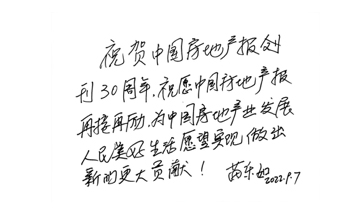 祝贺中国房地产报创
刊30周年、祝愿中国房地产报
再接再励,为中国房地产业发展
人民美好生活愿望实现,做出
新的更大贡献! 苗乐如
2022.9.7